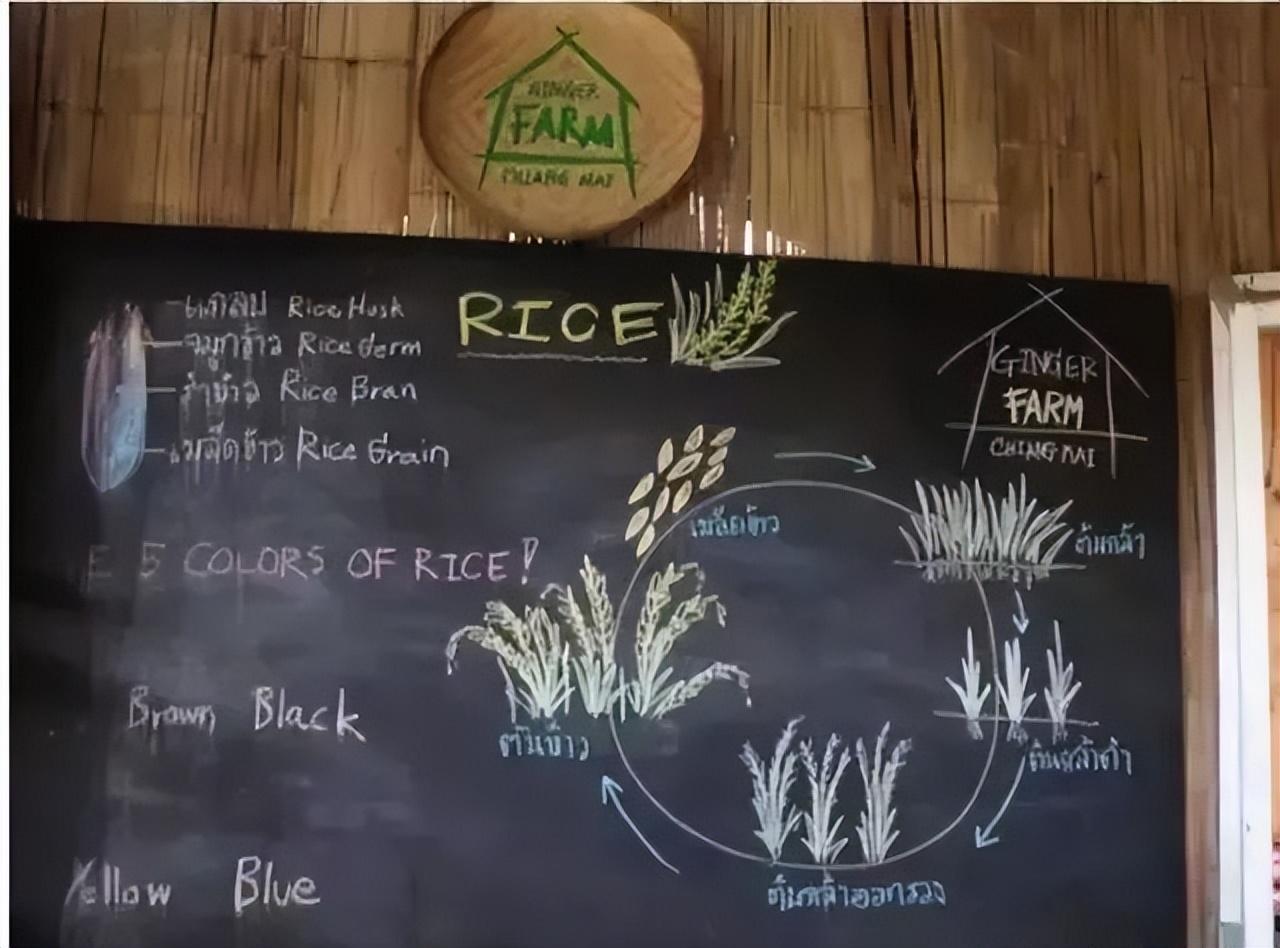 GINGER
FARM
แกลบ Rice Husk
จมูกข้าว Rice Germ
รำข้าว Rice Bran
เมล็ดข้าว Rice Grain
RICE
GINGER
FARM
CHING MAI
เมล็ดข้าว
ต้นกล้า
E 5 COLORS OF RICE!
ต้นข้าว
ต้นกล้าดำ
Brown Black
Yellow Blue
ต้นกล้าออกรวง